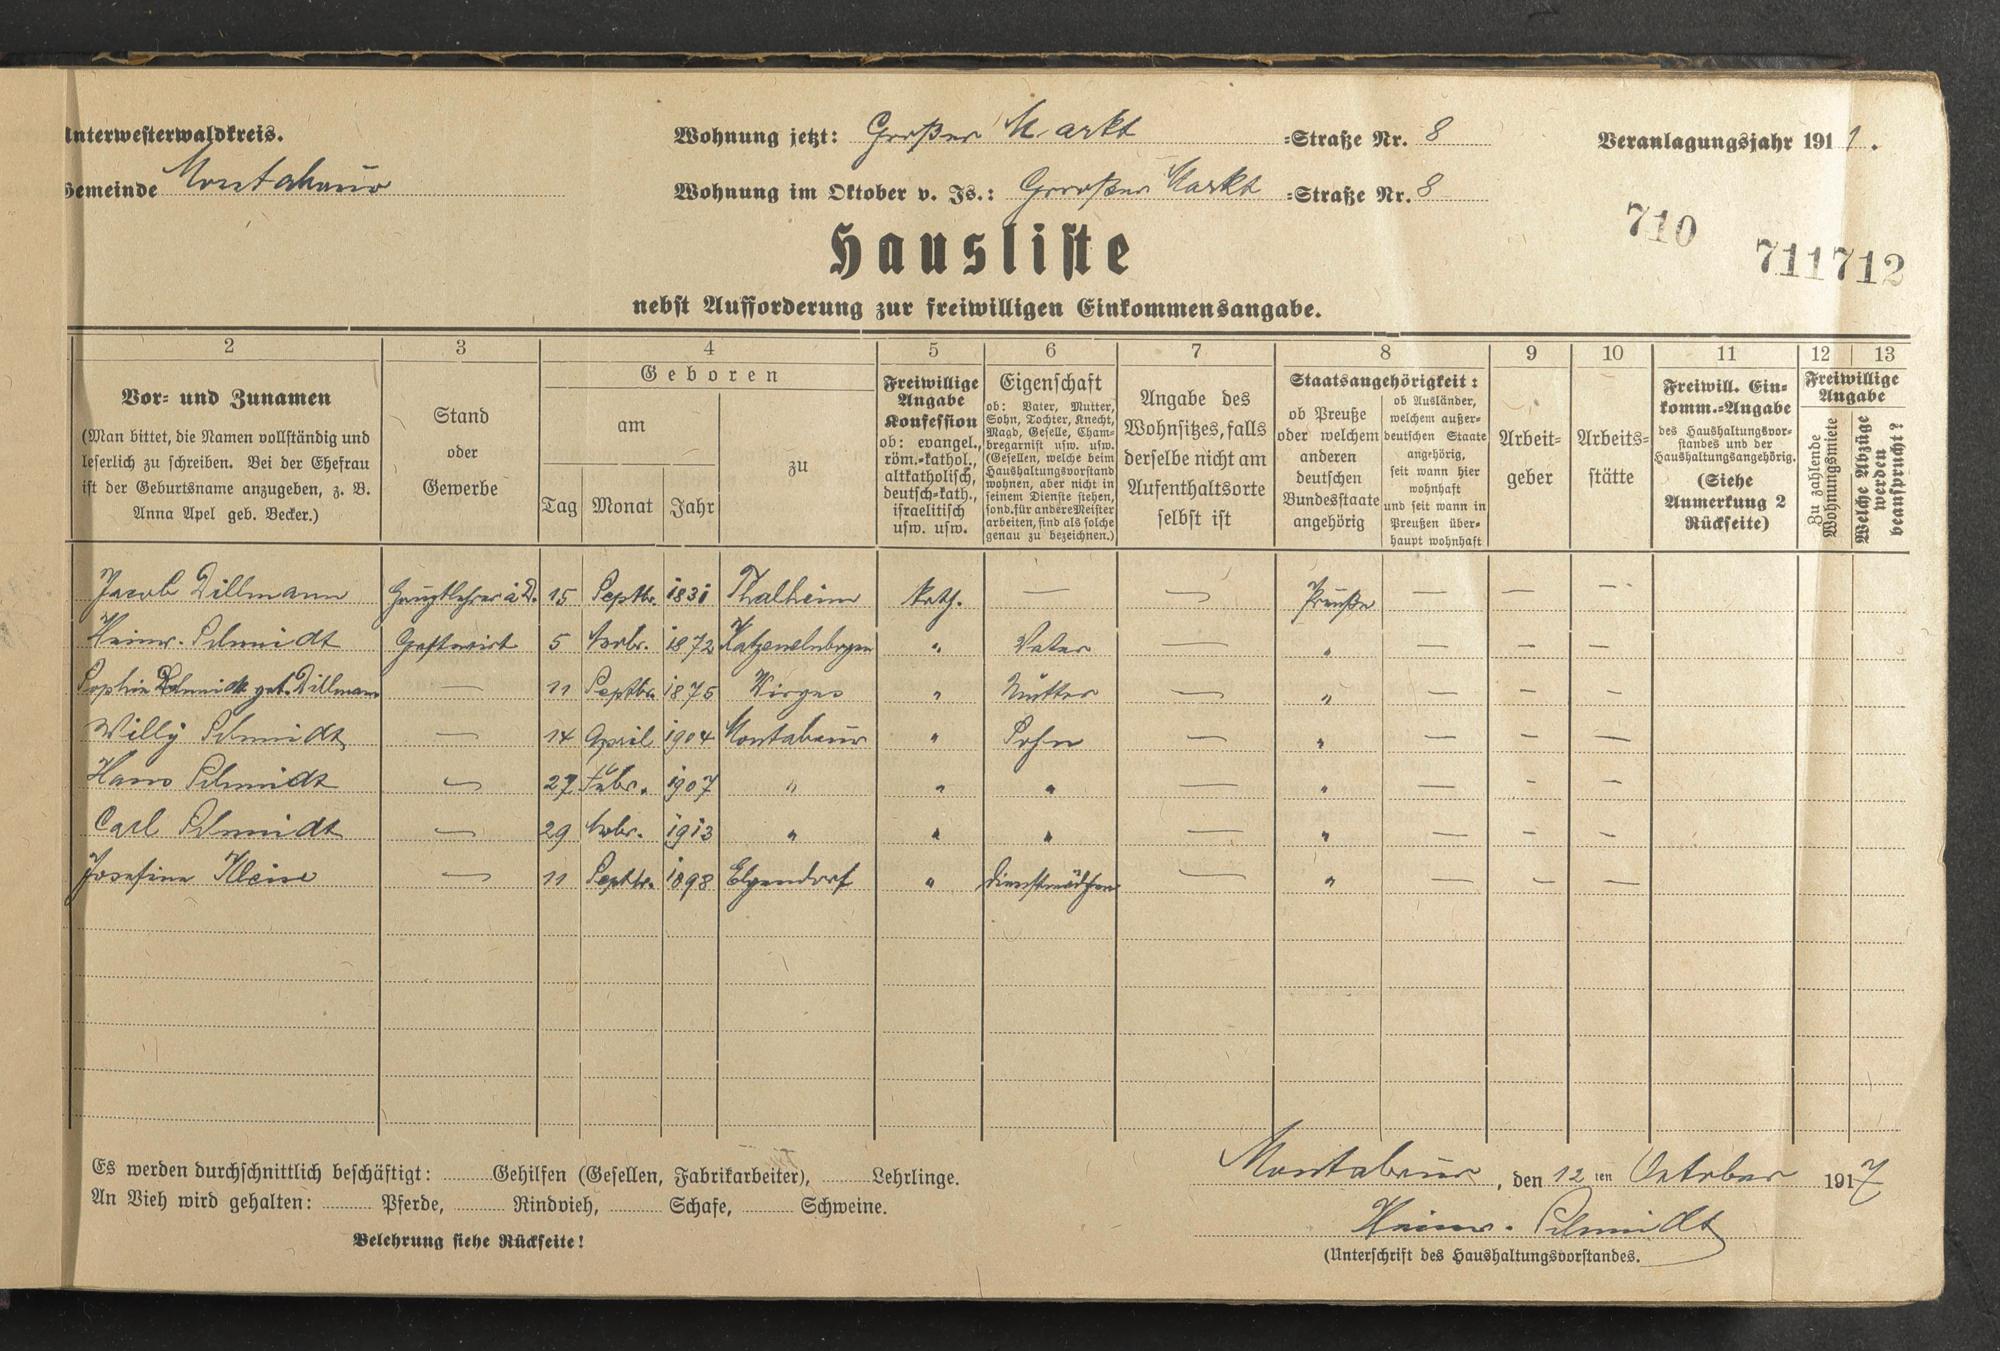 Unterwesterwaldkreis.
Wohnung jetzt: Großer Markt =Straße Nr. 8
Veranlagungsjahr 191
Gemeinde Montabaur
Wohnung im Oktober v. Js.: Großer Markt =Straße Nr. 8
710
711 712
Hausliste
nebst Aufforderung zur freiwilligen Einkommensangabe.
2 3 4 5 6 7 8 9 10 11 12 13
Vor- und Zunamen
(Man bittet, die Namen vollständig und
leserlich zu schreiben. Bei der Ehefrau
ist der Geburtsname anzugeben, z. B.
Anna Apel geb. Becker.)
Stand
oder
Gewerbe
Geboren
am
Tag Monat Jahr
zu
Freiwillige
Angabe
Konfession
ob: evangel.,
röm.-kathol.,
altkatholisch,
deutsch-kath.,
israelitisch
usw. usw.
Eigenschaft
ob: Vater, Mutter,
Sohn, Tochter, Knecht,
Magd, Geselle, Cham-
bregarnist usw. usw.
(Gesellen, welche beim
Haushaltungsvorstand
wohnen, aber nicht in
seinem Dienste stehen,
sond. für andere Meister
arbeiten, sind als solche
genau zu bezeichnen.)
Angabe des
Wohnsitzes, falls
derselbe nicht am
Aufenthaltsorte
selbst ist
Staatsangehörigkeit:
ob Preuße
oder welchem
anderen
deutschen
Bundesstaate
angehörig
ob Ausländer,
welchem außer-
deutschen Staate
angehörig,
seit wann hier
wohnhaft
und seit wann in
Preußen über-
haupt wohnhaft
Arbeit-
geber
Arbeits-
stätte
Freiwill. Ein-
komm.-Angabe
des Haushaltungsvor-
standes und der
Haushaltungsangehörig.
(Siehe
Anmerkung 2
Rückseite)
Freiwillige
Angabe
Zu zahlende
Wohnungsmiete
Welche Abzüge
werden
beansprucht?
Jacob Dillmann Hauptlehrer a D. 15 Septbr. 1831 Thalheim kath. — — Preuße — — —
Heinr. Schmidt Gastwirt 5 Novbr. 1872 Katzenelnbogen " Vater — " — — —
Sophie Schmidt geb. Dillmann — 11 Septbr. 1875 Wirges " Mutter — " — — —
Willy Schmidt — 14 April 1904 Montabaur " Sohn — " — — —
Hans Schmidt — 27 Febr. 1907 " " " — " — — —
Carl Schmidt — 29 Novbr. 1913 " " " — " — — —
Josefine Kleine — 11 Septbr. 1898 Elgendorf " Dienstmädchen — " — — —
Es werden durchschnittlich beschäftigt: Gehilfen (Gesellen, Fabrikarbeiter), Lehrlinge.
An Vieh wird gehalten: Pferde, Rindvieh, Schafe, Schweine.
Belehrung siehe Rückseite!
Montabaur, den 12 ten October 1917
Heinr. Schmidt
(Unterschrift des Haushaltungsvorstandes.